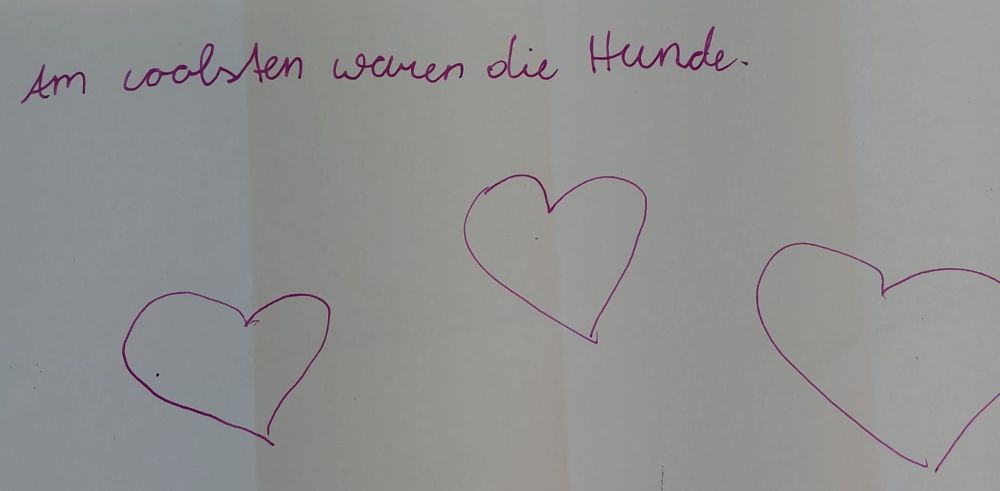 Am coolsten waren die Hunde.